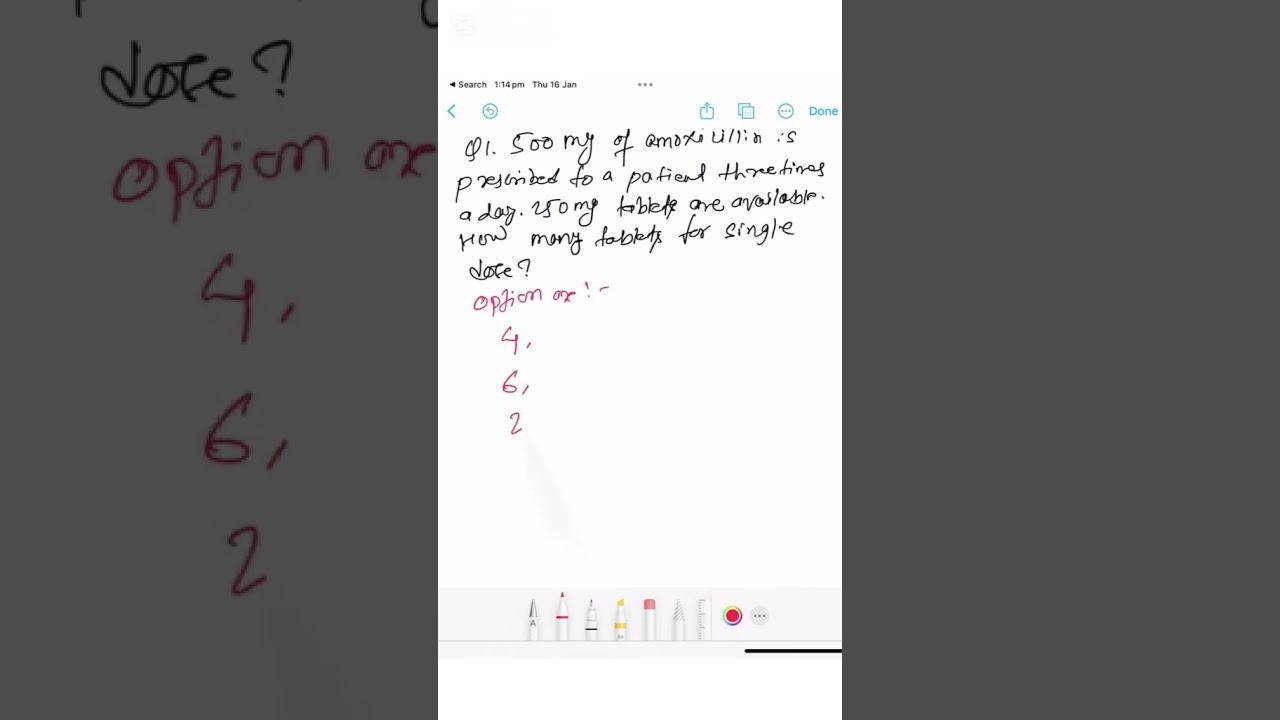 Search 1:14pm Thu 16 Jan
Done
Q1. 500 mg of amoxicillin is
prescribed to a patient three times
a day. 250 mg tablets are available.
How many tablets for single
dose?
option are :-
4,
6,
2
dose?
option are
4,
6,
2